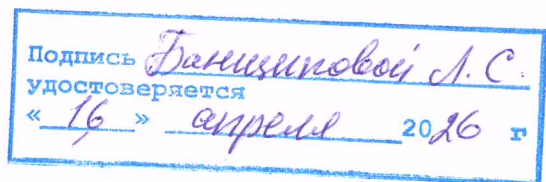 Подпись Банщиковой Л. С.
удостоверяется
« 16 » апреля 2026 г